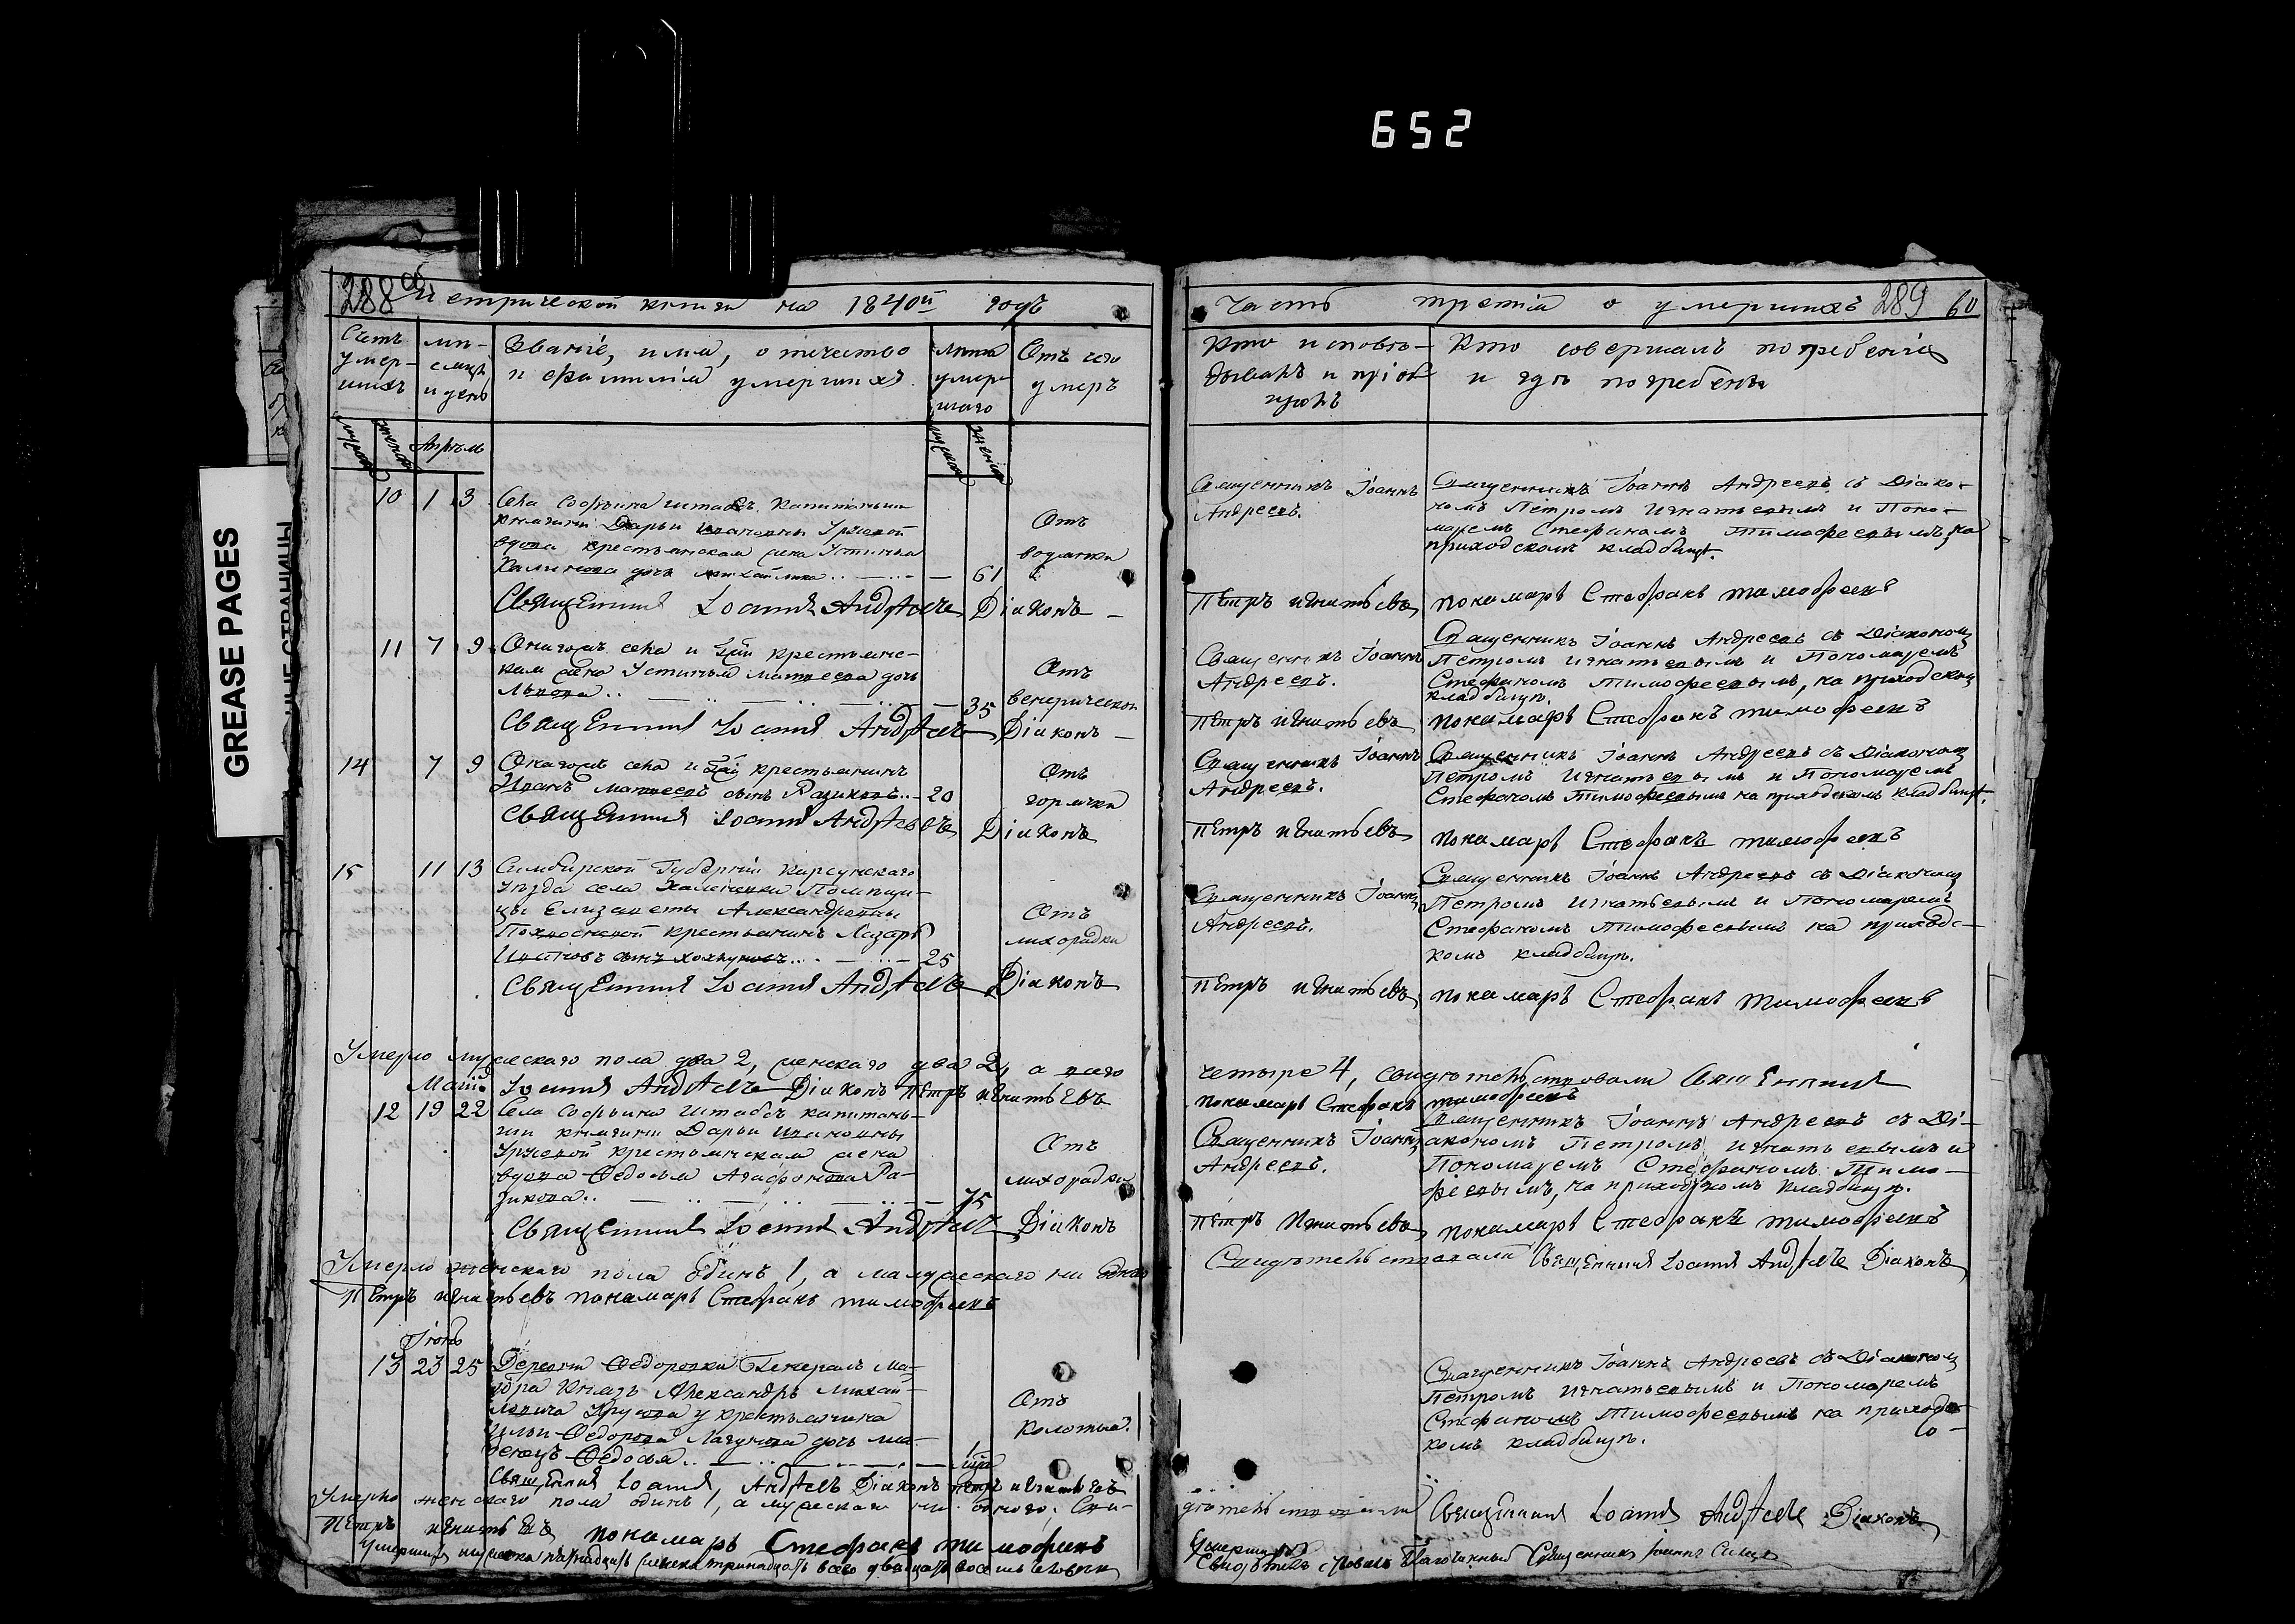 652
GREASE PAGES
288 об
Метрической книги на 1840й годъ
Счетъ умер-
шихъ
мѣ-
сяцъ
и день
Званіе, имя, отчество
и фамилія умершихъ.
лѣта
умер
шаго
Отъ чего
умеръ
Апрѣль
10 1 3 Села Софьина штабсъ капитанши
княгини Дарьи Ивановны Урусовой
вдова крестьянская жена Устинья
дочь Михайлова 61
Отъ
водянки
Священникъ Іоаннъ Андреевъ Діаконъ
11 7 9 Онагожъ села и Гжи крестьянс-
кая жена Устинья Матвеева дочь
Львова 35
Отъ
венерической
Священникъ Іоаннъ Андреевъ Діаконъ
14 7 9 Онагожъ села и Гжи крестьянинъ
Иванъ Матвеевъ сынъ Разиковъ 20
Отъ
горячки
Священникъ Іоаннъ Андреевъ Діаконъ
15 11 13 Симбирской Губерніи Карсунскаго
уѣзда села Помѣщи-
цы Елизаветы Александровны
крестьянинъ Лазарь
сынъ 25
Отъ
лихорадки
Священникъ Іоаннъ Андреевъ Діаконъ
Умерло мужескаго пола два 2, женскаго два 2, а всего
Іоаннъ Андреевъ Діаконъ Петръ Игнатьевъ
Маій
12 19 22 Села Софьина Штабсъ капитан-
ши княгини Дарьи Ивановны
Урусовой крестьянская жена
вдова Федосья Агафонова Ра-
зикова 75
Отъ
лихорадки
Священникъ Іоаннъ Андреевъ Діаконъ
Умерло женскаго пола одинъ 1, а мужескаго ни одного
Петръ Игнатьевъ пономарь Стефанъ Тимофеевъ
Іюнь
13 23 25 Деревни Федоровки Генералъ Ма-
іора Князь Александра Михай-
ловича Урусова у крестьянина
Ильи Федорова Лагунова дочь мла-
денецъ Федосья 1
Отъ
колотья.
Священникъ Іоаннъ Андреевъ Діаконъ Петръ Игнатьевъ
Умерло женскаго пола одинъ 1, а мужескаго ни одного, Сви-
Петръ Игнатьевъ пономарь Стефанъ Тимофеевъ
Умершихъ мужеска пятнадцать женска тринадцать всего двадцать восемь человекъ
Часть третія о умершихъ 289 60
Кто исповѣ-
дывалъ и пріоб
щалъ
Кто совершалъ погребеніе
и гдѣ погребены
Священникъ Іоаннъ
Андреевъ.
Священникъ Іоаннъ Андреевъ съ Діако-
номъ Петромъ Игнатьевымъ и Поно-
маремъ Стефаномъ Тимофеевымъ, на
приходскомъ кладбищѣ.
Петръ Игнатьевъ пономарь Стефанъ Тимофеевъ
Священникъ Іоаннъ
Андреевъ.
Священникъ Іоаннъ Андреевъ съ Діакономъ
Петромъ Игнатьевымъ и Пономаремъ
Стефаномъ Тимофеевымъ, на приходскомъ
кладбищѣ.
Петръ Игнатьевъ пономарь Стефанъ Тимофеевъ
Священникъ Іоаннъ
Андреевъ.
Священникъ Іоаннъ Андреевъ съ Діакономъ
Петромъ Игнатьевымъ и Пономаремъ
Стефаномъ Тимофеевымъ на приходскомъ кладбищѣ.
Петръ Игнатьевъ пономарь Стефанъ Тимофеевъ
Священникъ Іоаннъ
Андреевъ.
Священникъ Іоаннъ Андреевъ съ Діакономъ
Петромъ Игнатьевымъ и Пономаремъ
Стефаномъ Тимофеевымъ на приходс-
комъ кладбищѣ.
Петръ Игнатьевъ пономарь Стефанъ Тимофеевъ
четыре 4, свидѣтельствовали Священникъ
пономарь Стефанъ Тимофеевъ
Священникъ Іоаннъ
Андреевъ.
Священникъ Іоаннъ Андреевъ съ Ді-
акономъ Петромъ Игнатьевымъ и
Пономаремъ Стефаномъ Тимо-
феевымъ, на приходскомъ кладбищѣ.
Петръ Игнатьевъ пономарь Стефанъ Тимофеевъ
Свидѣтельствовали Священникъ Іоаннъ Андреевъ Діаконъ
Священникъ Іоаннъ Андреевъ съ Діакономъ
Петромъ Игнатьевымъ и Пономаремъ
Стефаномъ Тимофеевымъ на приходс-
комъ кладбищѣ.
дѣтельствовали Священникъ Іоаннъ Андреевъ Діаконъ
Умершихъ
Свидѣтельствовалъ Благочинный Священникъ Іоаннъ